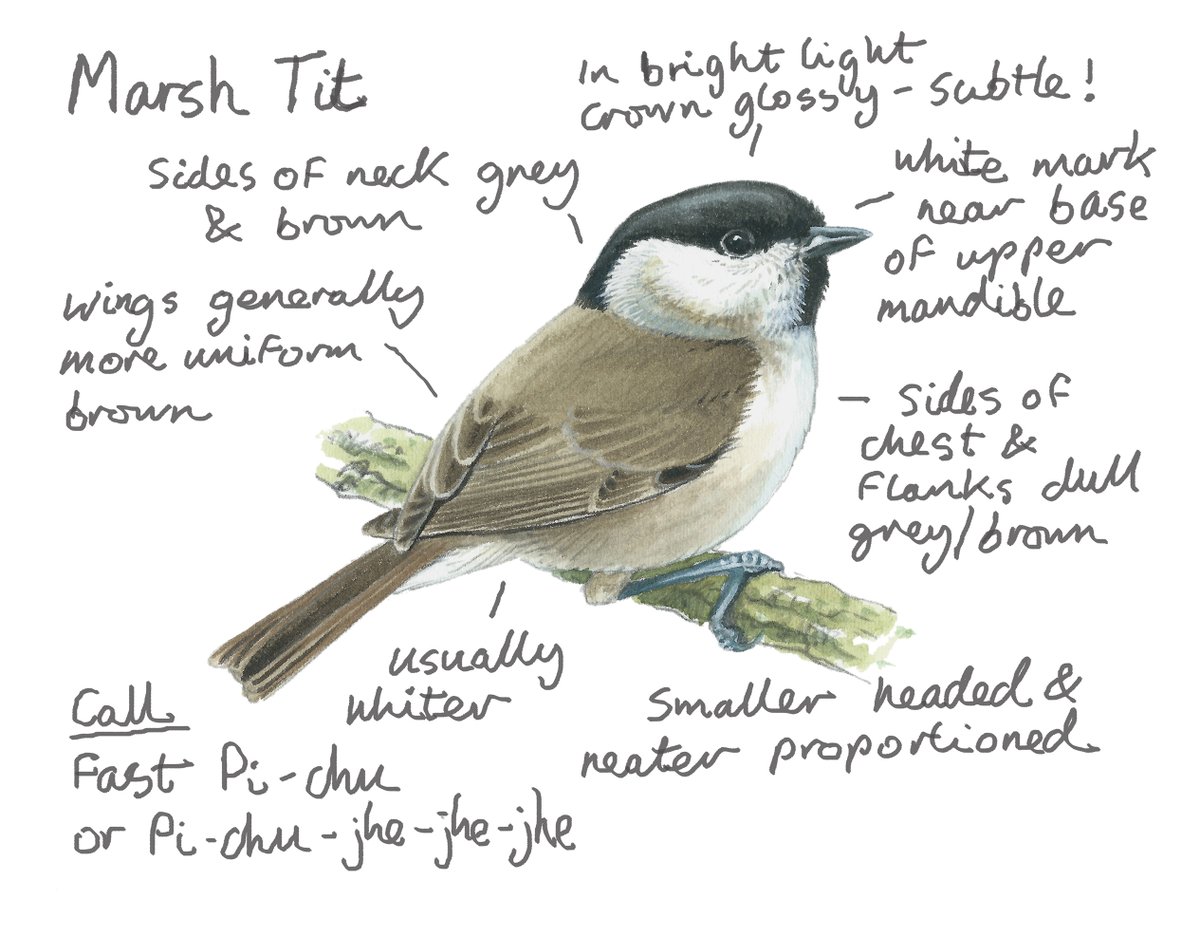 Marsh Tit
In bright light
crown glossy - subtle!
Sides of neck grey
& brown
white mark
near base
of upper
mandible
wings generally
more uniform
brown
sides of
chest &
flanks dull
grey/brown
usually
whiter
smaller headed &
neater proportioned
Call
Fast Pi-chu
or Pi-chu-jhe-jhe-jhe